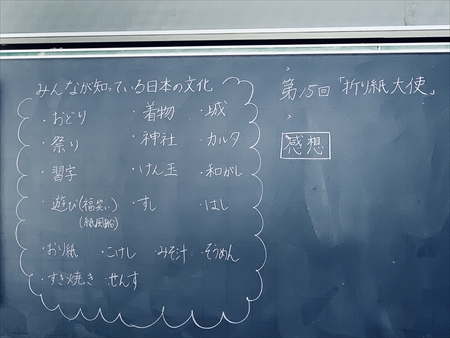 みんなが知っている日本の文化
・おどり ・着物 ・城
・祭り ・神社 ・カルタ
・習字 ・けん玉 ・和がし
・遊び(福笑い) ・すし ・はし
(紙風船)
・おり紙 ・こけし ・みそ汁 ・そうめん
・すき焼き ・せんす
第15回「折り紙大使」
感想